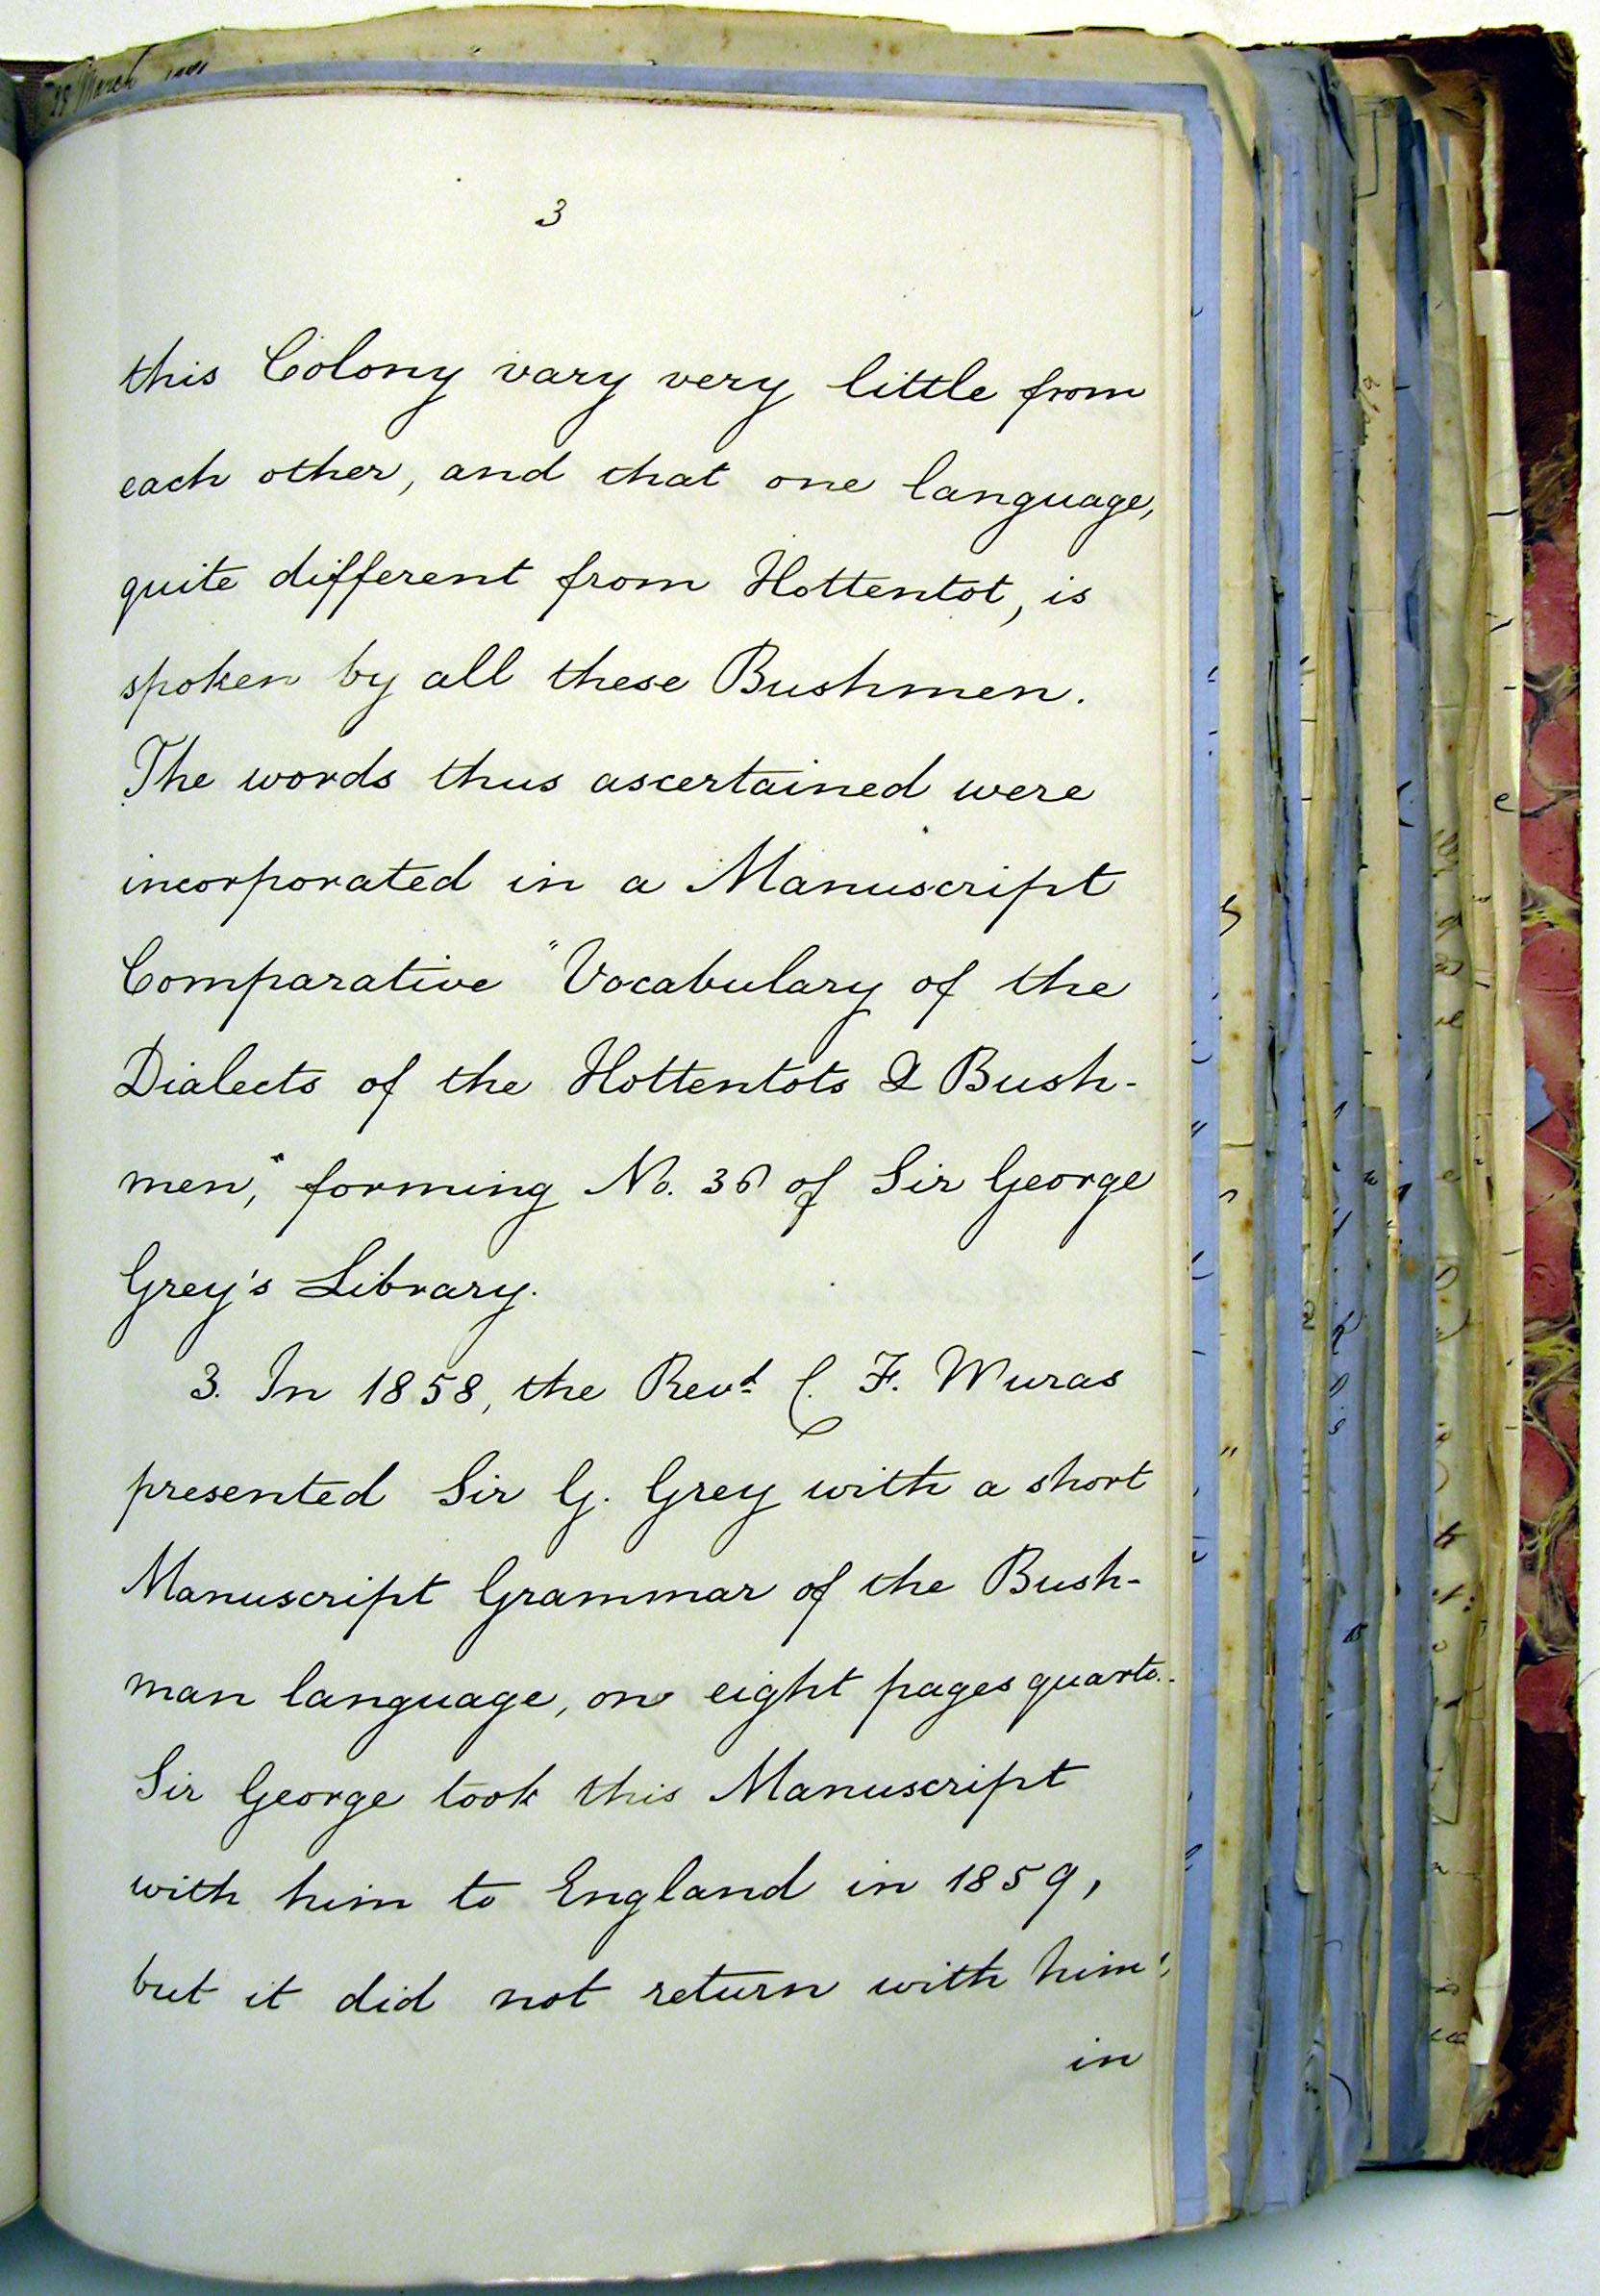 28 March
3
this Colony vary very little from
each other, and that one language,
quite different from Hottentot, is
spoken by all these Bushmen.
The words thus ascertained were
incorporated in a Manuscript
Comparative "Vocabulary of the
Dialects of the Hottentots & Bush-
men," forming No. 36 of Sir George
Grey's Library.
3. In 1858, the Revd C. F. Wuras
presented Sir G. Grey with a short
Manuscript Grammar of the Bush-
man language, on eight pages quarto.
Sir George took this Manuscript
with him to England in 1859,
but it did not return with him;
in